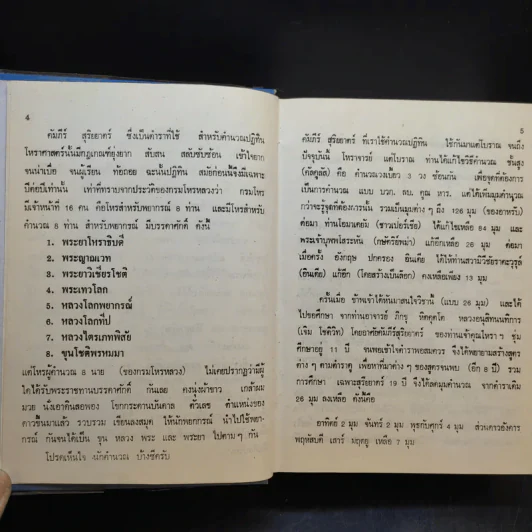 4
คัมภีร์ สุริยาตร์ ซึ่งเป็นตำราที่ใช้ สำหรับคำนวณปฏิทิน
โหราศาสตร์นั้นมีกฎเกณฑ์ยุ่งยาก สับสน สลับซับซ้อน เข้าใจยาก
จนน่าเบื่อ จนผู้เรียน ท้อถอย ฉะนั้นปฏิทิน สมัยก่อนนี้จึงมีเฉพาะ
ปีต่อปีเท่านั้น เท่าที่ทราบจากประวัติของกรมโหรหลวงว่า กรมโหร
มีเจ้าหน้าที่ 16 คน คือโหรสำหรับพยากรณ์ 8 ท่าน และมีโหรสำหรับ
คำนวณ 8 ท่าน สำหรับพยากรณ์ มีบรรดาศักดิ์ ดังนี้
1. พระยาโหราธิบดี
2. พระญาณเวท
3. พระยาวิเชียรโชติ
4. พระเทวโลก
5. หลวงโลกพยากรณ์
6. หลวงโลกทีป
7. หลวงไตรเภทพิสัย
8. ขุนโชติพรหมมา
แต่โหรผู้คำนวณ 8 นาย (ของกรมโหรหลวง) ไม่เคยปรากฏว่ามีผู้
ใดได้รับพระราชทานบรรดาศักดิ์ กันเลย คงนุ่งผ้าขาว เกล้าผม
มวย นั่งเอาดินสอพอง โขกกระดานบันดาล ตัวเลข ตำแหน่งของ
ดาวขึ้นมาแล้ว รวบรวม เขียนลงสมุด ให้นักพยากรณ์ นำไปใช้พยา-
กรณ์ กันจนได้เป็น ขุน หลวง พระ และ พระยา ไปตามๆ กัน
โปรดเห็นใจ นักคำนวณ บ้างซีครับ
5
คัมภีร์ สุริยาตร์ ที่เราใช้คำนวณปฏิทิน ใช้กันมาแต่โบราณ จนถึง
ปัจจุบันนี้ โหราจารย์ แต่โบราณ ท่านได้แก้ไขวิธีคำนวณ ขั้นสูง
คือ คำนวณดวงเลว 3 วง ซ้อนกัน เพื่อจุดที่ต้องการ
เป็นการคำนวณ แบบ บวก, ลบ, คูณ หาร, แต่ได้เพิ่มมุมคำนวณ
กว่าจะรู้จุดที่ต้องการนั้น รวมเป็นมุมต่าง ๆ ถึง 128 มุม (ของอาหรับ)
ต่อมา ท่านโอมาเคยัม (ชาวเปอร์เซีย) ได้แก้ไขเหลือ 84 มุม และ
พระเจ้าบุพพโสระหัน (กษัตริย์พม่า) แก้อีกเหลือ 26 มุม ต่อมา
เมื่อครั้ง อังกฤษ ปกครอง อินเดีย ได้ให้ท่านสวามีวีชัยราคะวุรุลู่
(อินเดีย) แก้อีก (โดยสร้างเป็นล๊อก) คงเหลือเพียง 13 มุม
ครั้นเมื่อ ข้าพเจ้าได้หันมาสนใจวิชานี้ (แบบ 26 มุม) และได้
ไปขอศึกษา จากท่านอาจารย์ ภิกขุ หิตคุตโต หลวงอนุสิทนนทิการ
(เจิม โชติวิท) โดยอาศัยคัมภีร์สุริยาตร์ ของท่านเจ้าคุณโหรา ฯ ชุ่ม
ศึกษาอยู่ 11 ปี จนพอเข้าใจตำราพอสมควร จึงได้พยายามสร้างสูตร
ต่าง ๆ ตามตำราดู เพื่อหาที่มาต่าง ๆ ของสูตรจนพบ (อีก 8 ปี) รวม
การศึกษา เฉพาะสุริยาตร์ 19 ปี จึงได้ลดมุมคำนวณ จากตำราเดิม
26 มุม ลงเหลือ ดังนี้คือ
อาทิตย์ 2 มุม จันทร์ 2 มุม พุธกับศุกร์ 4 มุม ส่วนดาวอังคาร
พฤหัสบดี เสาร์ มฤตยู เหลือ 7 มุม